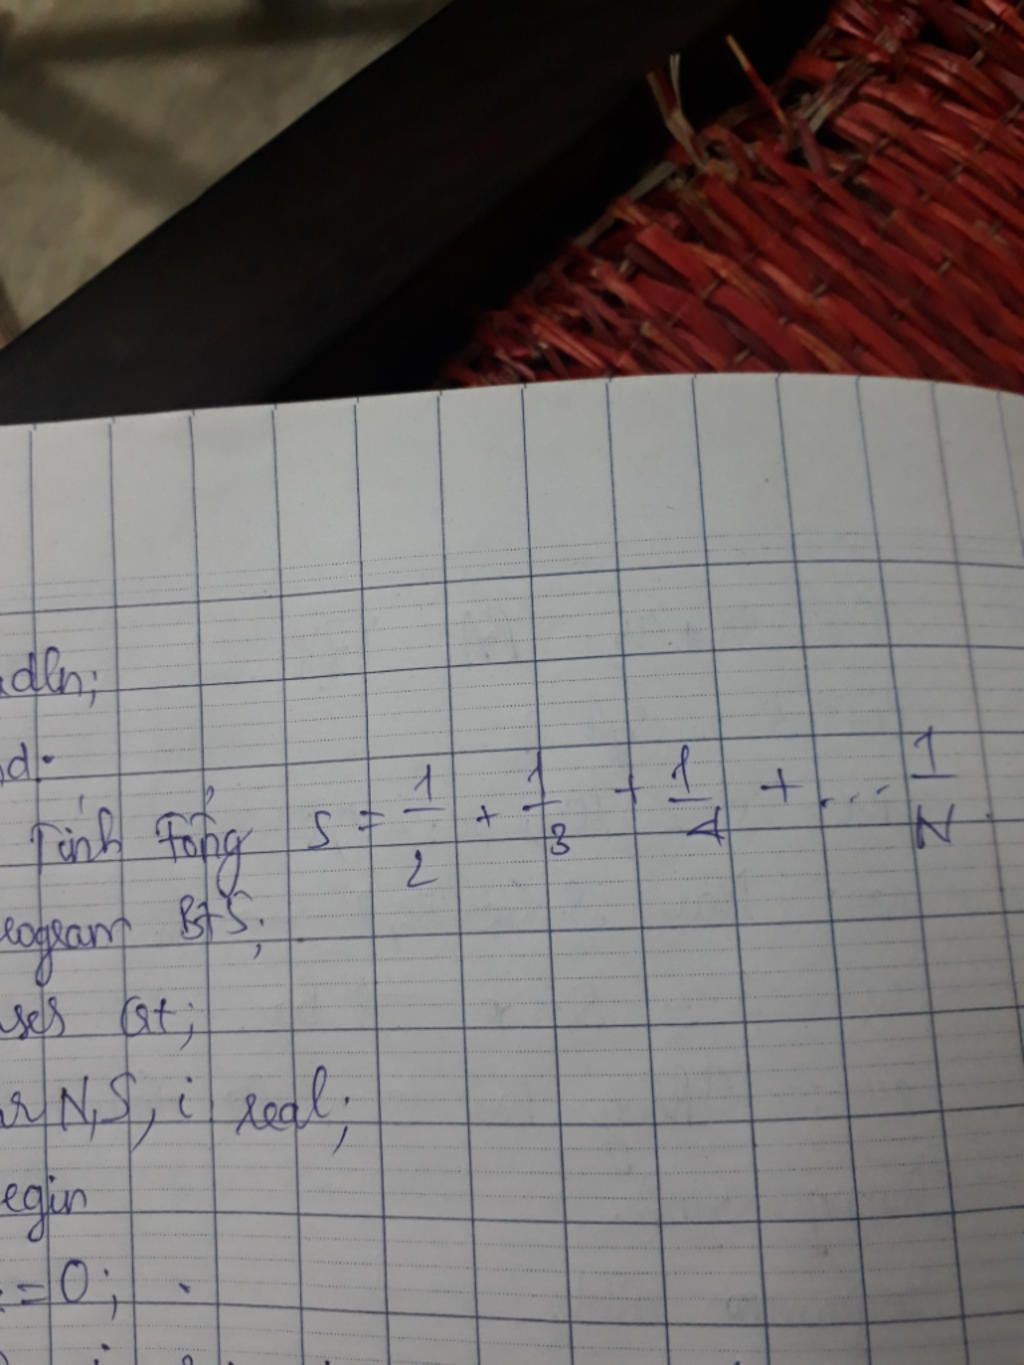 adln;
nd.
Tính Tổng S = 1/2 + 1/3 + 1/4 + .... 1/N
rogram BTS;
ses Crt;
ar N,S, i real;
egin
:=0;